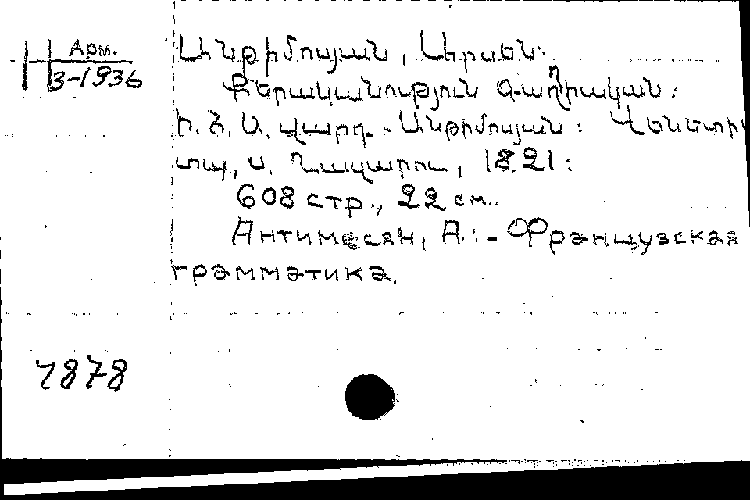 Арм.
3-1936
Անթիմոսյան, Աիրսեն:
Քերականություն գաղիական:
Ի Հ. Ս. վարդ. Անթիմոսյան: Վենետի
տպ, ս. Ղազարու, 1821:
608 стр., 22 см.
Антимосян, А.: - Французская
грамматика.
7878